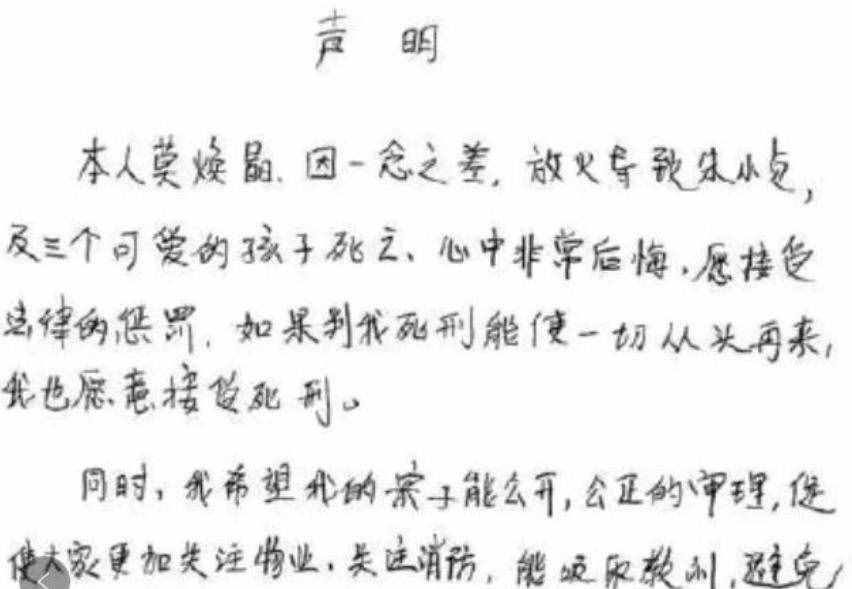 声 明
本人莫焕晶、因一念之差,放火导致朱小贞,
及三个可爱的孩子死亡、心中非常后悔,愿接受
法律的惩罚,如果判我死刑能使一切从头再来,
我也愿意接受死刑。
同时,我希望我的案子能公开,公正的审理,促
使大家更加关注物业、关注消防,能吸取教训,避免